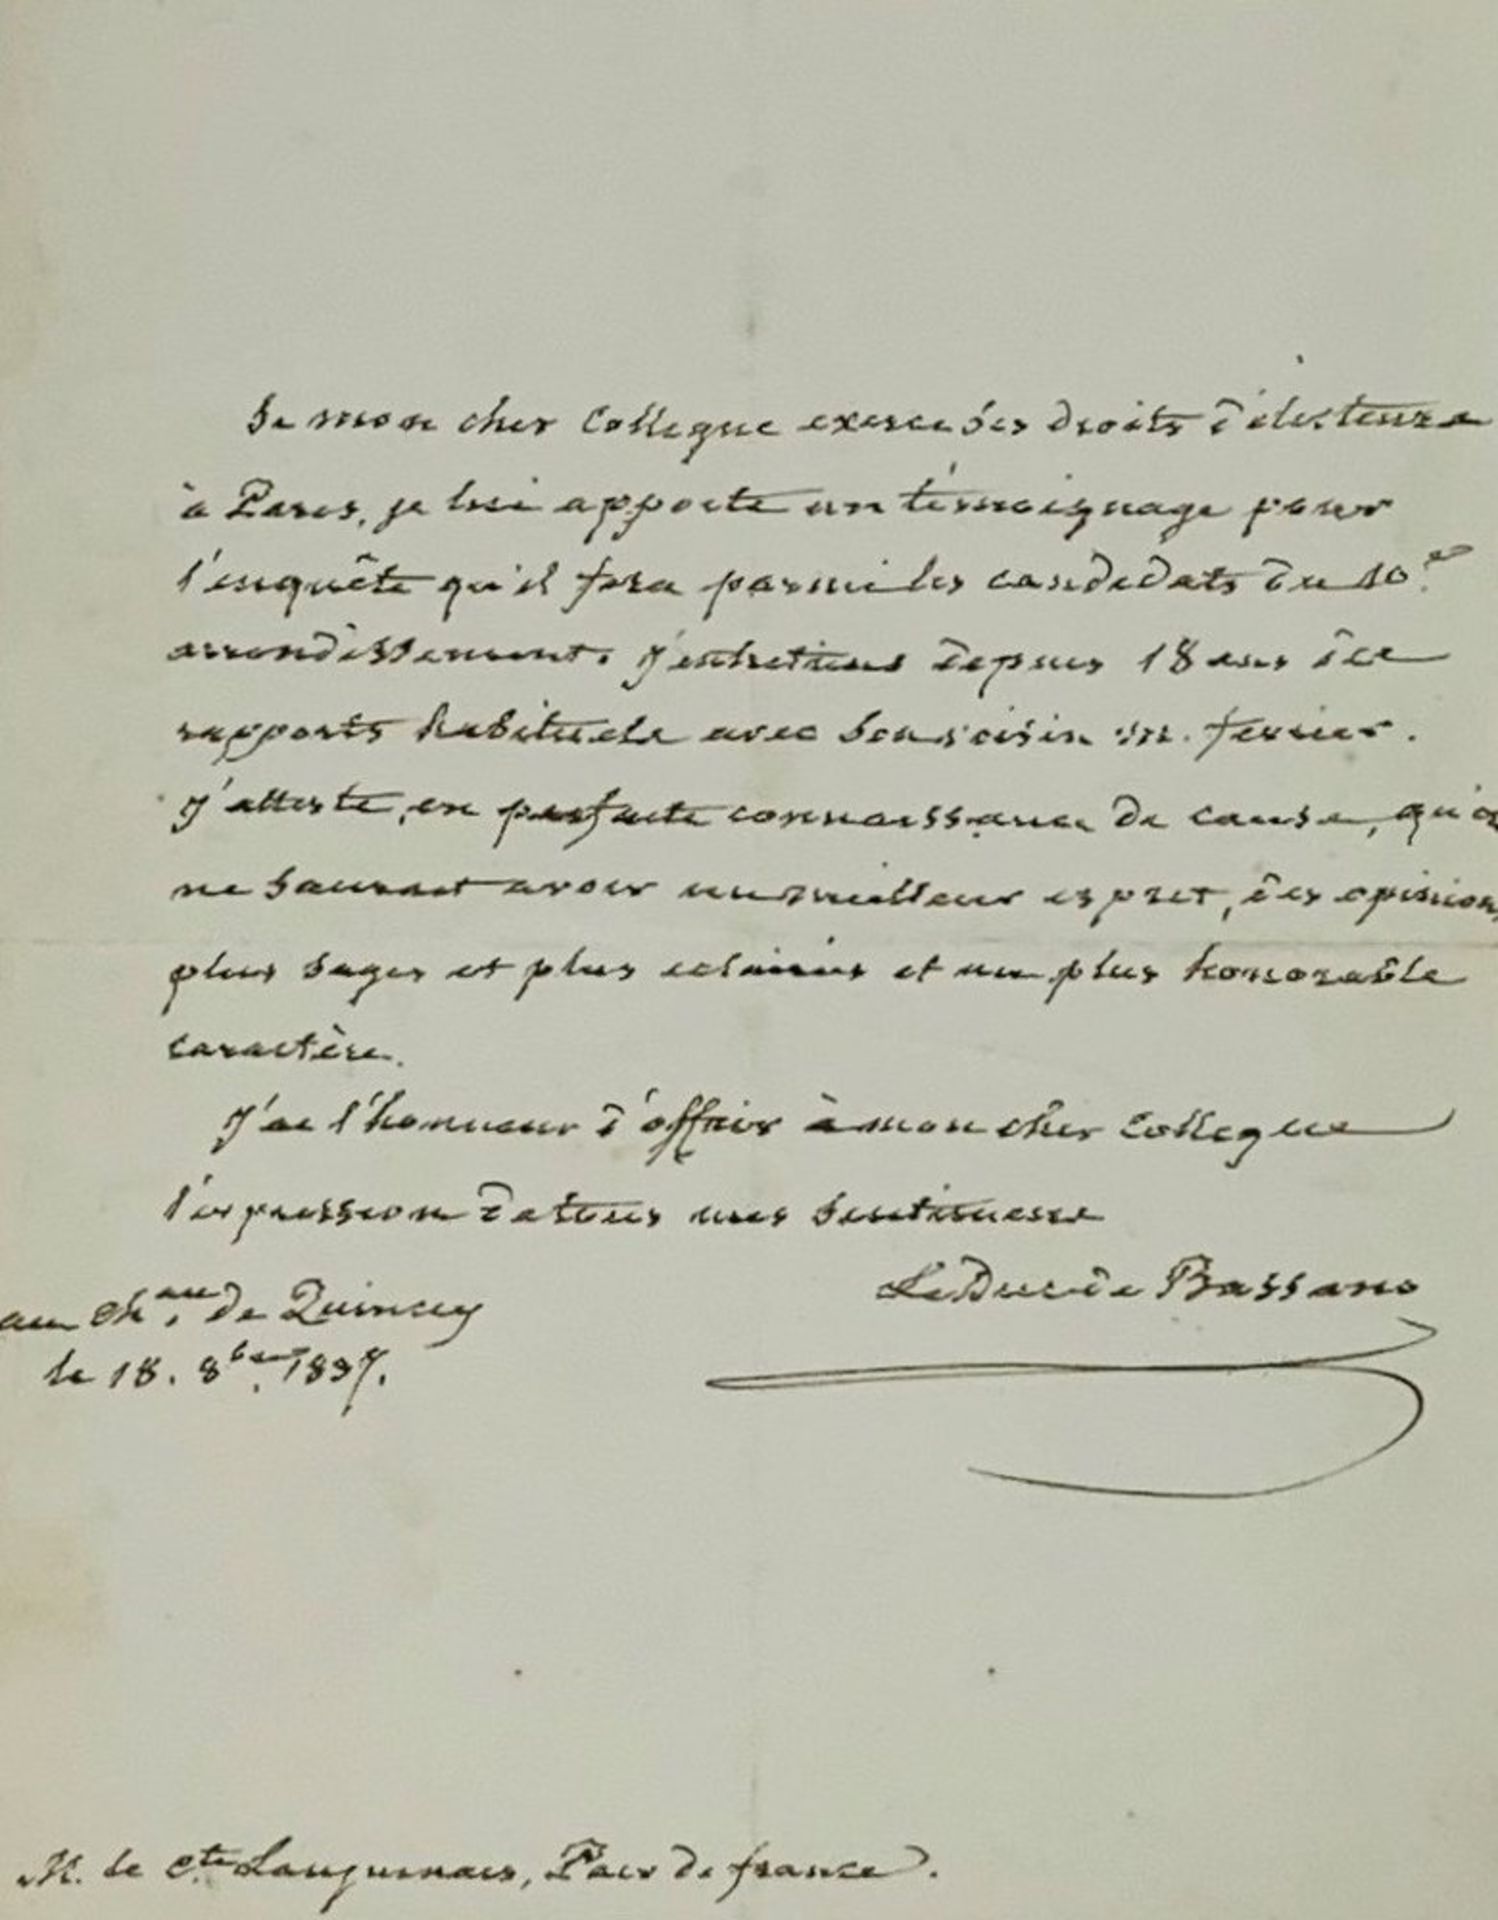 Si mon cher Collegue exerce ses droits d'electeur
à Paris, je lui apporte un témoignage pour
l'enquête qu'il fera parmi les candidats du 10.e
arrondissement. j'entretiens depuis 18 ans des
rapports habituels avec son voisin m. ferrier.
j'atteste, en parfaite connaissance de cause, qu'o
ne saurait avoir un meilleur esprit, des opinion
plus sages et plus eclairées et un plus honorable
caractère.
J'ai l'honneur d'offrir à mon cher Collegue
l'expression de tous mes sentimens
Le Duc de Bassano
au Ch.au de Quincey
le 18. 8bre. 1837.
M. le Cte Lanjuinais, Pair de france.